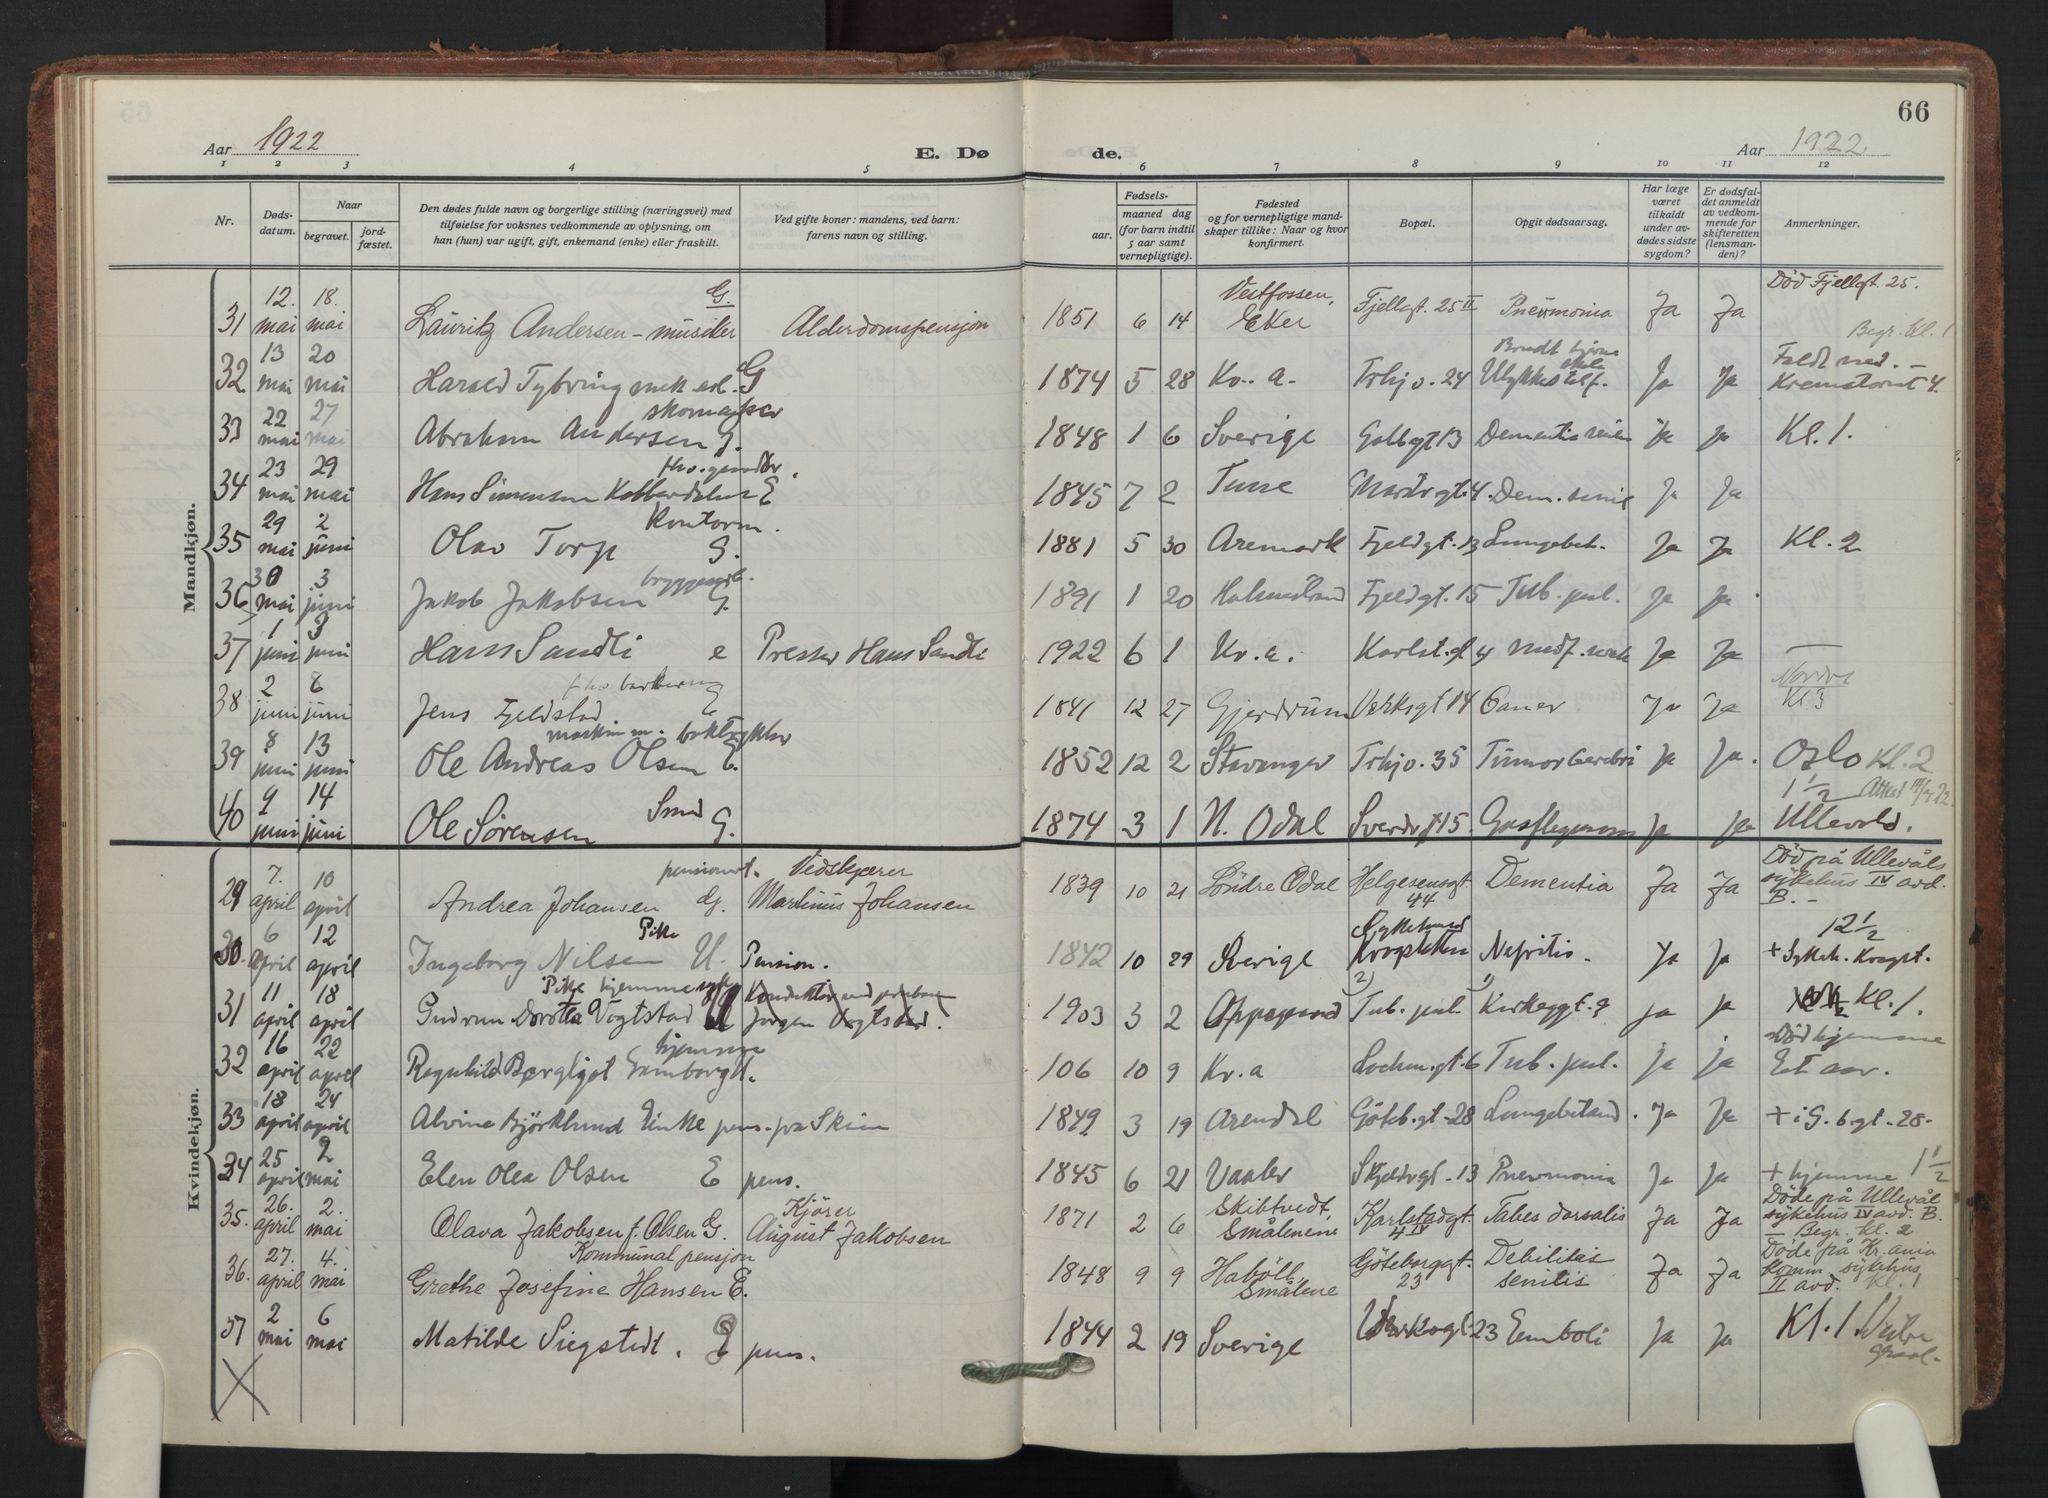 66
Aar 1922
E. Dø
de.
Aar 1922
1 2 3 4 5 6 7 8 9 10 11 12
Nr.
Døds-
datum.
Naar
begravet.
jord-
fæstet.
Den dødes fulde navn og borgerlige stilling (næringsvei) med
tilføielse for voksnes vedkommende av oplysning, om
han (hun) var ugift, gift, enkemand (enke) eller fraskilt.
Ved gifte koner: mandens, ved barn:
farens navn og stilling.
Fødsels-
aar.
maaned dag
(for barn indtil
5 aar samt
vernepligtige).
Fødested
og for vernepligtige mand-
skaper tillike: Naar og hvor
konfirmert.
Bopæl.
Opgit dødsaarsag.
Har læge
været
tilkaldt
under av-
dødes sidste
sygdom?
Er dødsfal-
det anmeldt
av vedkom-
mende for
skifteretten
(lensman-
den)?
Anmerkninger.
Mandkjøn.
31 12. mai 18. mai Lauritz Andersen - musiker G. Alderdomspensjon 1851 6 14 Vestfossen, Eker Fjellgt. 25 II Pneumonia Ja Ja Død Fjellgt. 25. Begr. kl. 1
32 13 mai 20 mai Harald Tybring G 1874 5 28 Kr. a. Trhjv. 24 Ja Ja Faldt ned. - Krematoriet 4.
33 22 mai 27 mai Abraham Andersen skomager g. 1848 1 6 Sverige Golbgt 13 Dementia senie Ja Ja Kl. 1.
34 23 mai 29 mai Hans Simensen E 1845 7 2 Tune 4. Dem. senil Ja Ja
35 29 mai 2 juni Olav Torp Kontorm. G. 1881 5 30 Aremark Fjeldgt. 13 Lungebet. Ja Ja Kl. 2
36 30 mai 3 juni Jakob Jakobsen G. 1891 1 20 Holmestrand Fjeldgt. 15 Tub. pul. Ja Ja.
37 1 juni 3 juni Hans Sandli e Presser Hans Sandli 1922 6 1 Kr. a. Karlst. gt 4 medf. svak Ja Ja —
38 2 juni 8 juni Jens Fjeldstad E 1841 12 27 Gjerdrum Verksgt 14 Cancer Ja Ja Nordre Kl. 3
39 8 juni 13 juni Ole Andreas Olsen maskinm. boktrykker E. 1852 12 2 Stavanger Trhjv. 35 Tumor Cerebri Ja Ja. Oslo Kl. 2
40 9 juni 14 juni Ole Sørensen Smed G. 1874 3 1 N. Odal Sverdrgt 15 Ja Ja 1 1/2 Ullevold.
Kvindekjøn.
29 7. april 10 april Andrea Johansen pensionert. g. Vedskjærer Martinius Johansen 1839 10 21 Söndre Odal Helgesensgt. 44 Dementia Ja Ja Död på Ullevåls sykehus IV avd. B. -
30. 6 april 12 april Ingeborg Nilsen Pike U. Pension. 1842 10 29 Sverige Sykehuset Krogstøtten Nefritis. Ja Ja 12 1/2 + Sykeh. Krogst.
31 11 april 18 april Gudrun Dorotea Vogtstad Pike hjemme U Jørgen Vogtstad. 1903 3 2 2) Tub. pul. 1) Kirkeggt. 9 ja ja Kl. 1.
32 16 april 22 april Ragnhild Bergljot hjemme U. 106 10 9 Kr. a Lochm. gt. 6 Tub. pul. ja ja Död hjemme Et aar.
33 18 april 24 april Alvine Björklund Enke pens. fra Skien 1849 3 19 Arendal Göteb. gt. 28 Lungebetænd. Ja Ja + i G. b. gt. 28.
34 25 april 2 mai Elen Olea Olsen E pens. 1845 6 21 Vaaler Skjeldrgt. 13 Pneumonia Ja Ja + hjemme 1 1/2
35. 26. april 2. mai Olava Jakobsen f. Olsen G. Kjörer August Jakobsen 1871 2 6 Skibtvedt, Smålenene Karlstadgt. 4 IV Tabes dorsalis Ja Ja Döde på Ullevål sykehus IV avd. B. - Begr. kl. 2
36. 27. april 4. mai Grethe Josefine Hansen E. Kommunal pensjon 1848 9 9 Haböll, Smålene Göteborggt. 23 Debilitas senilis Ja Ja Döde på Kr.ania Komm. sykehus, II avd. kl. 1
37 2 mai 6 mai Matilde Siegstedt. E pens. 1844 2 19 Sverige 23 Emboli Ja Ja Kl. 1